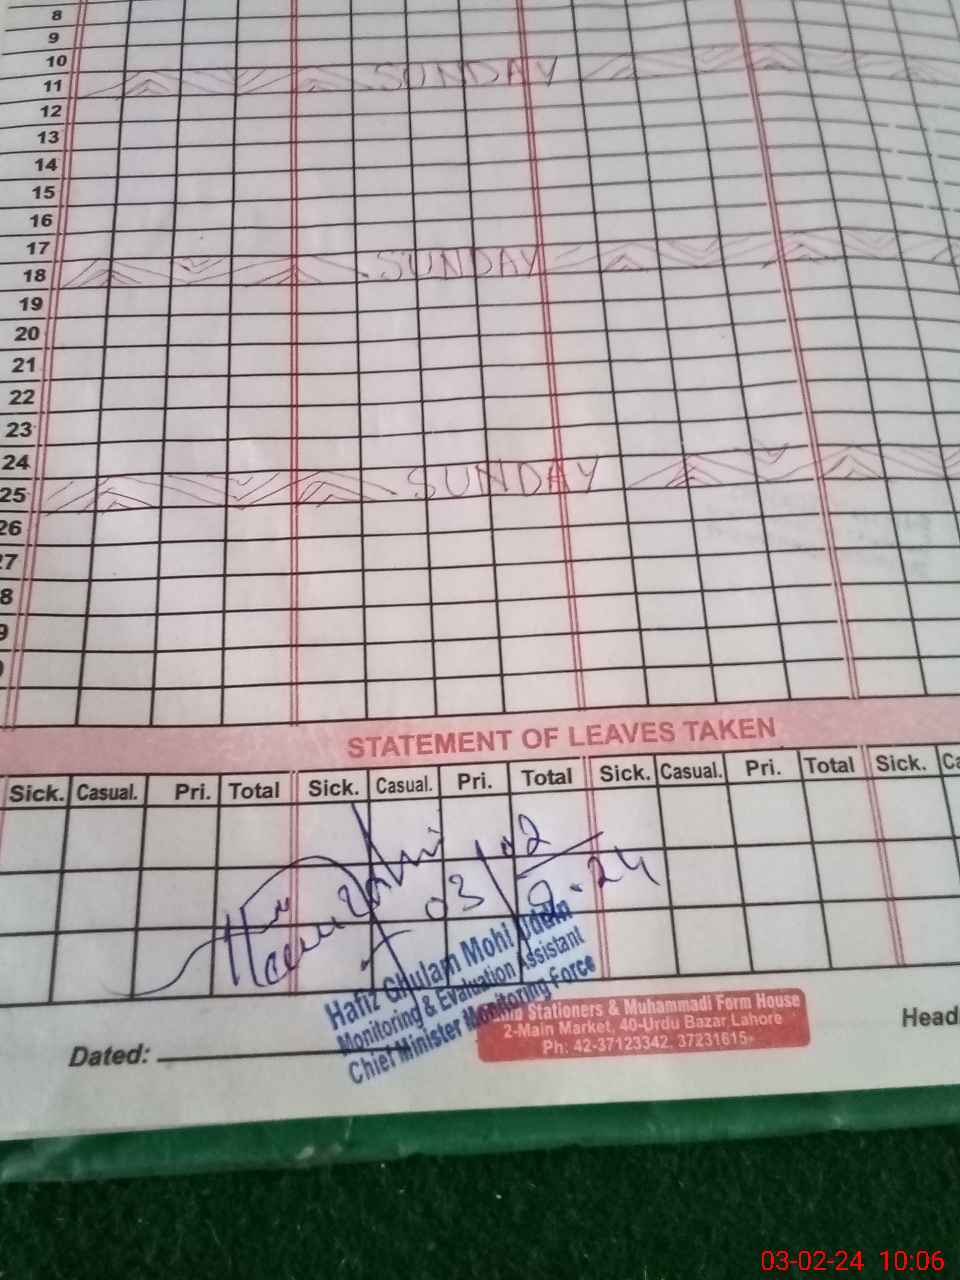 8
9
10
11 SUNDAY
12
13
14
15
16
17
18 SUNDAY
19
20
21
22
23
24
25 SUNDAY
26
27
8
9
STATEMENT OF LEAVES TAKEN
Sick. Casual. Pri. Total Sick. Casual. Pri. Total Sick. Casual. Pri. Total Sick. Ca
03/02
24
Hafiz Ghulam Mohi Uddin
Monitoring & Evaluation Assistant
Chief Minister Monitoring Force
Stationers & Muhammadi Form House
2-Main Market, 40-Urdu Bazar Lahore
Ph: 42-37123342, 37231615
Head
Dated:
03-02-24 10:06